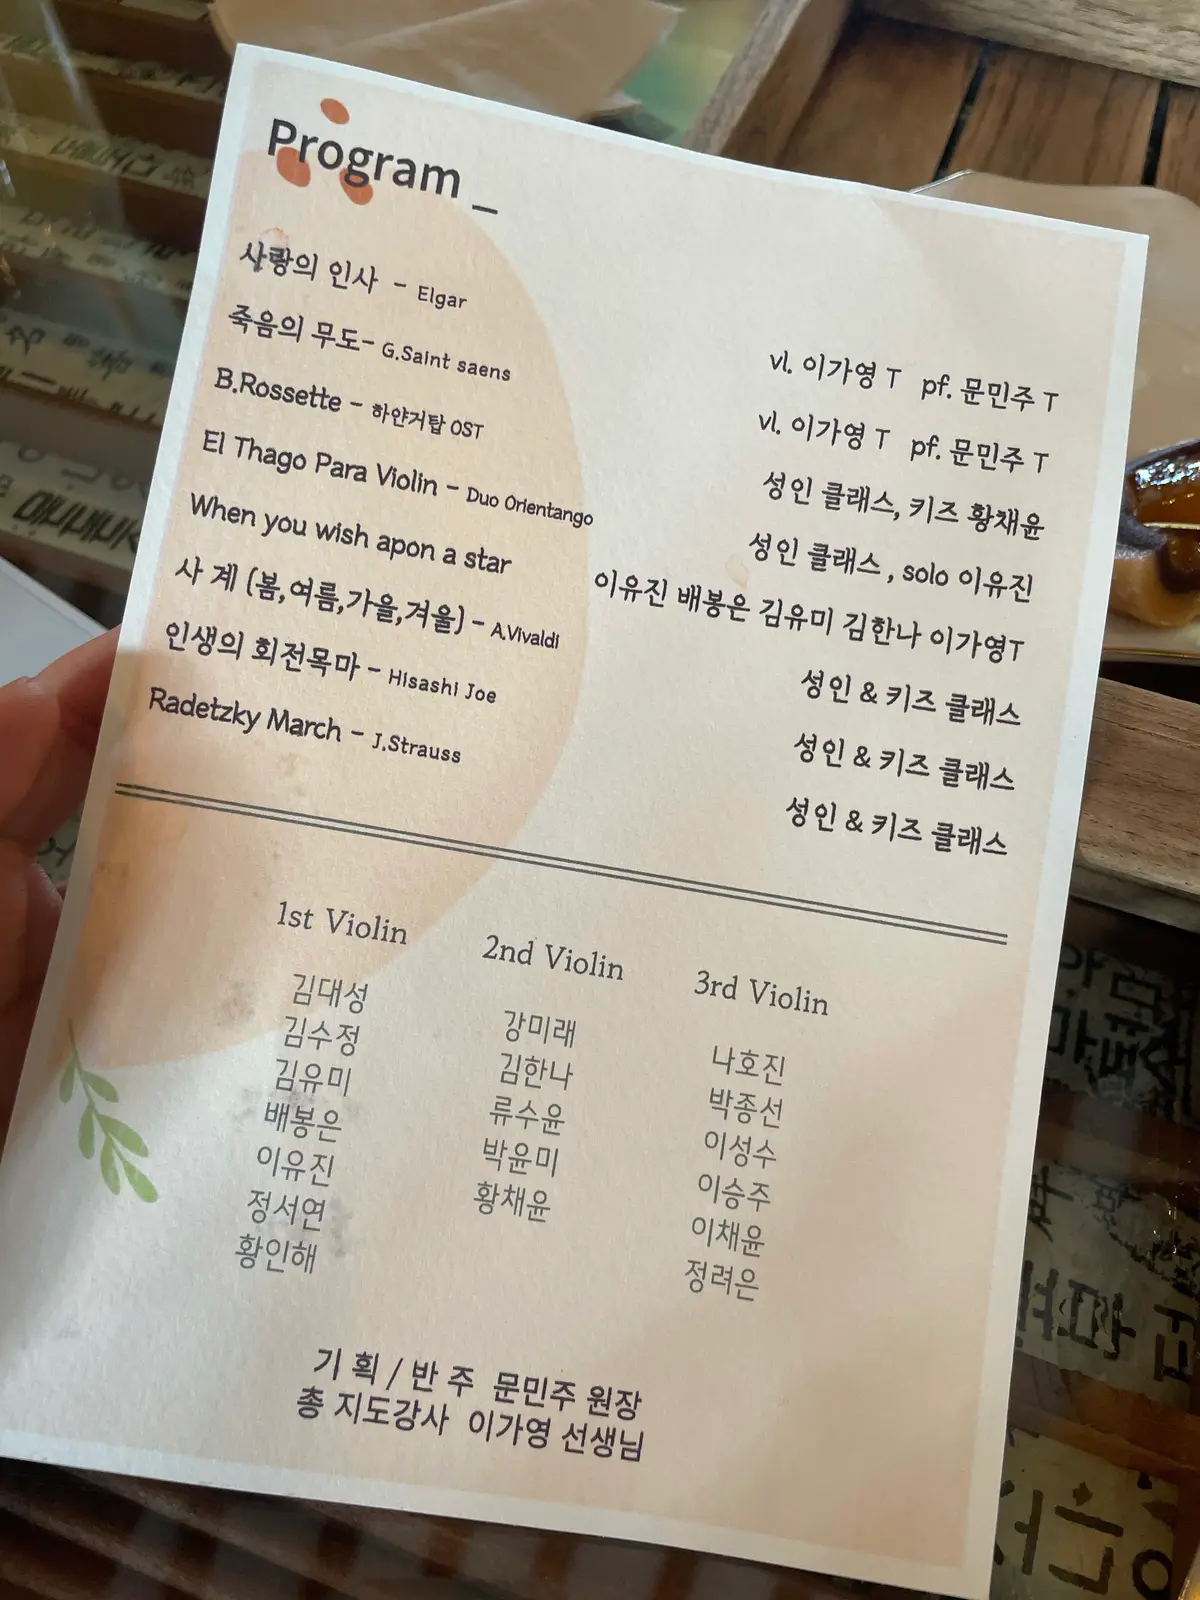 Program _
사랑의 인사 - Elgar
vl. 이가영 T pf. 문민주 T
죽음의 무도- G.Saint saens
vl. 이가영 T pf. 문민주 T
B.Rossette - 하얀거탑 OST
성인 클래스, 키즈 황채윤
El Thago Para Violin - Duo Orientango
성인 클래스 , solo 이유진
When you wish apon a star
이유진 배봉은 김유미 김한나 이가영T
사 계 (봄,여름,가을,겨울) - A.Vivaldi
성인 & 키즈 클래스
인생의 회전목마 - Hisashi Joe
성인 & 키즈 클래스
Radetzky March - J.Strauss
성인 & 키즈 클래스
1st Violin
김대성
김수정
김유미
배봉은
이유진
정서연
황인해
2nd Violin
강미래
김한나
류수윤
박윤미
황채윤
3rd Violin
나호진
박종선
이성수
이승주
이채윤
정려은
기 획 / 반 주 문민주 원장
총 지도강사 이가영 선생님